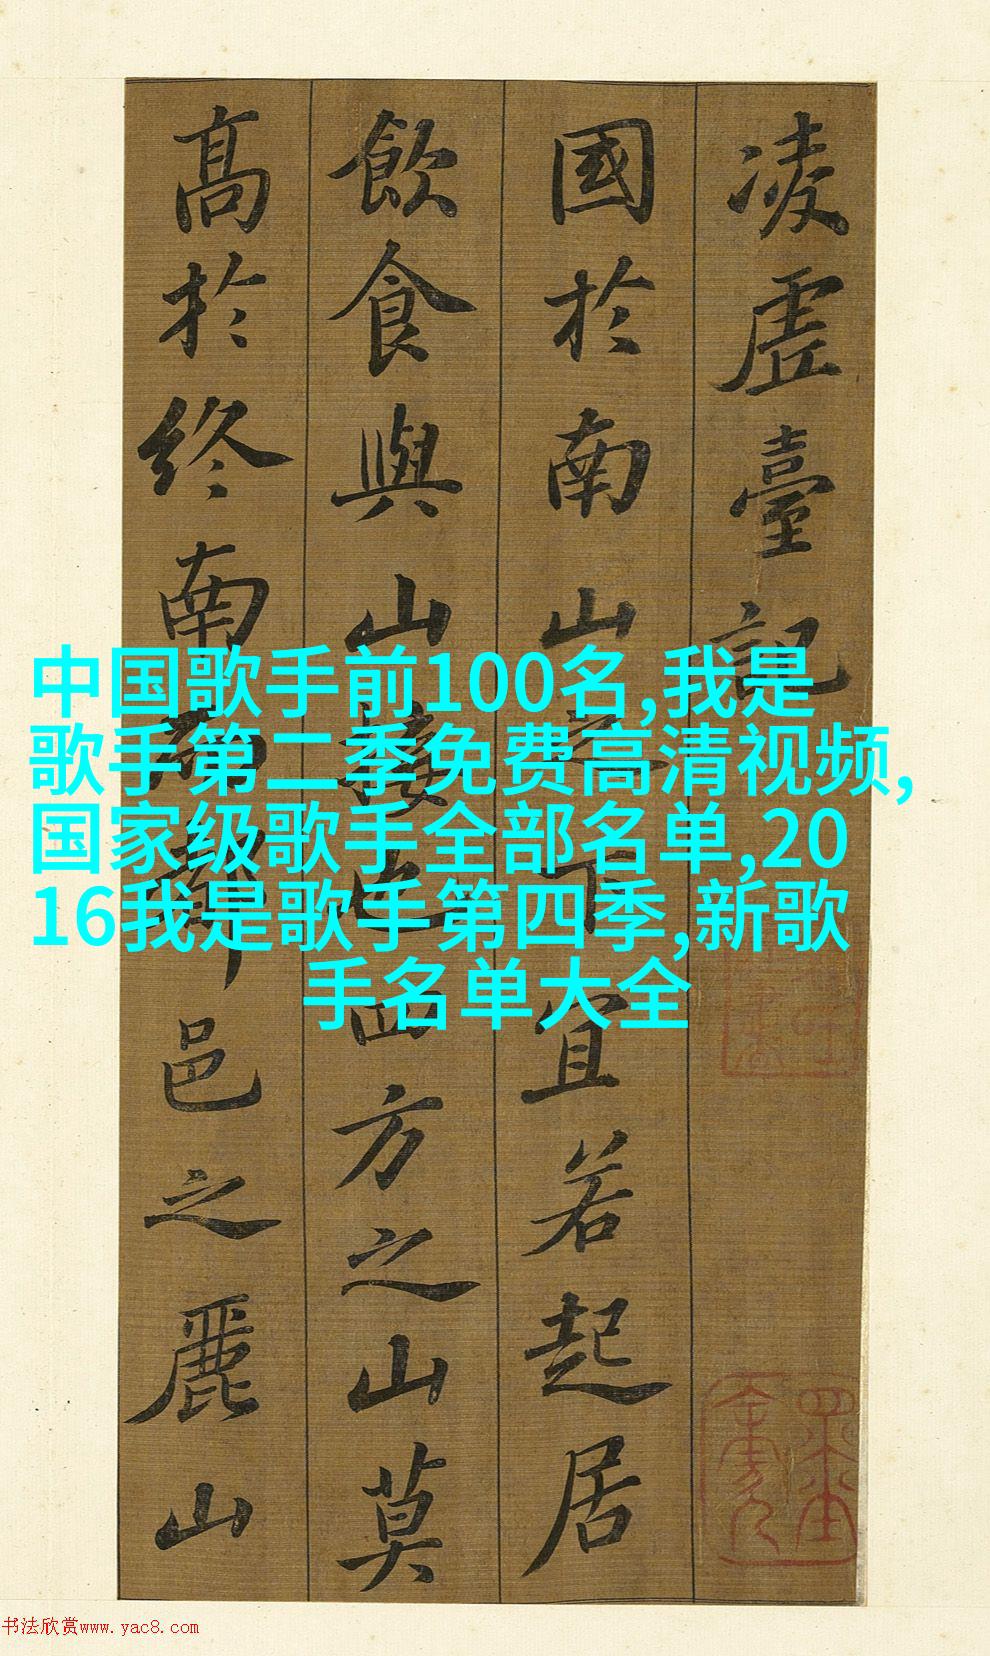 凌虛臺記
國於南山之下宜若起居
飲食與山接也四方之山莫
高於終南而都邑之麗山
中国歌手前100名,我是
歌手第二季免费高清视频,
国家级歌手全部名单,20
16我是歌手第四季,新歌
手名单大全
书法欣赏www.yac8.com